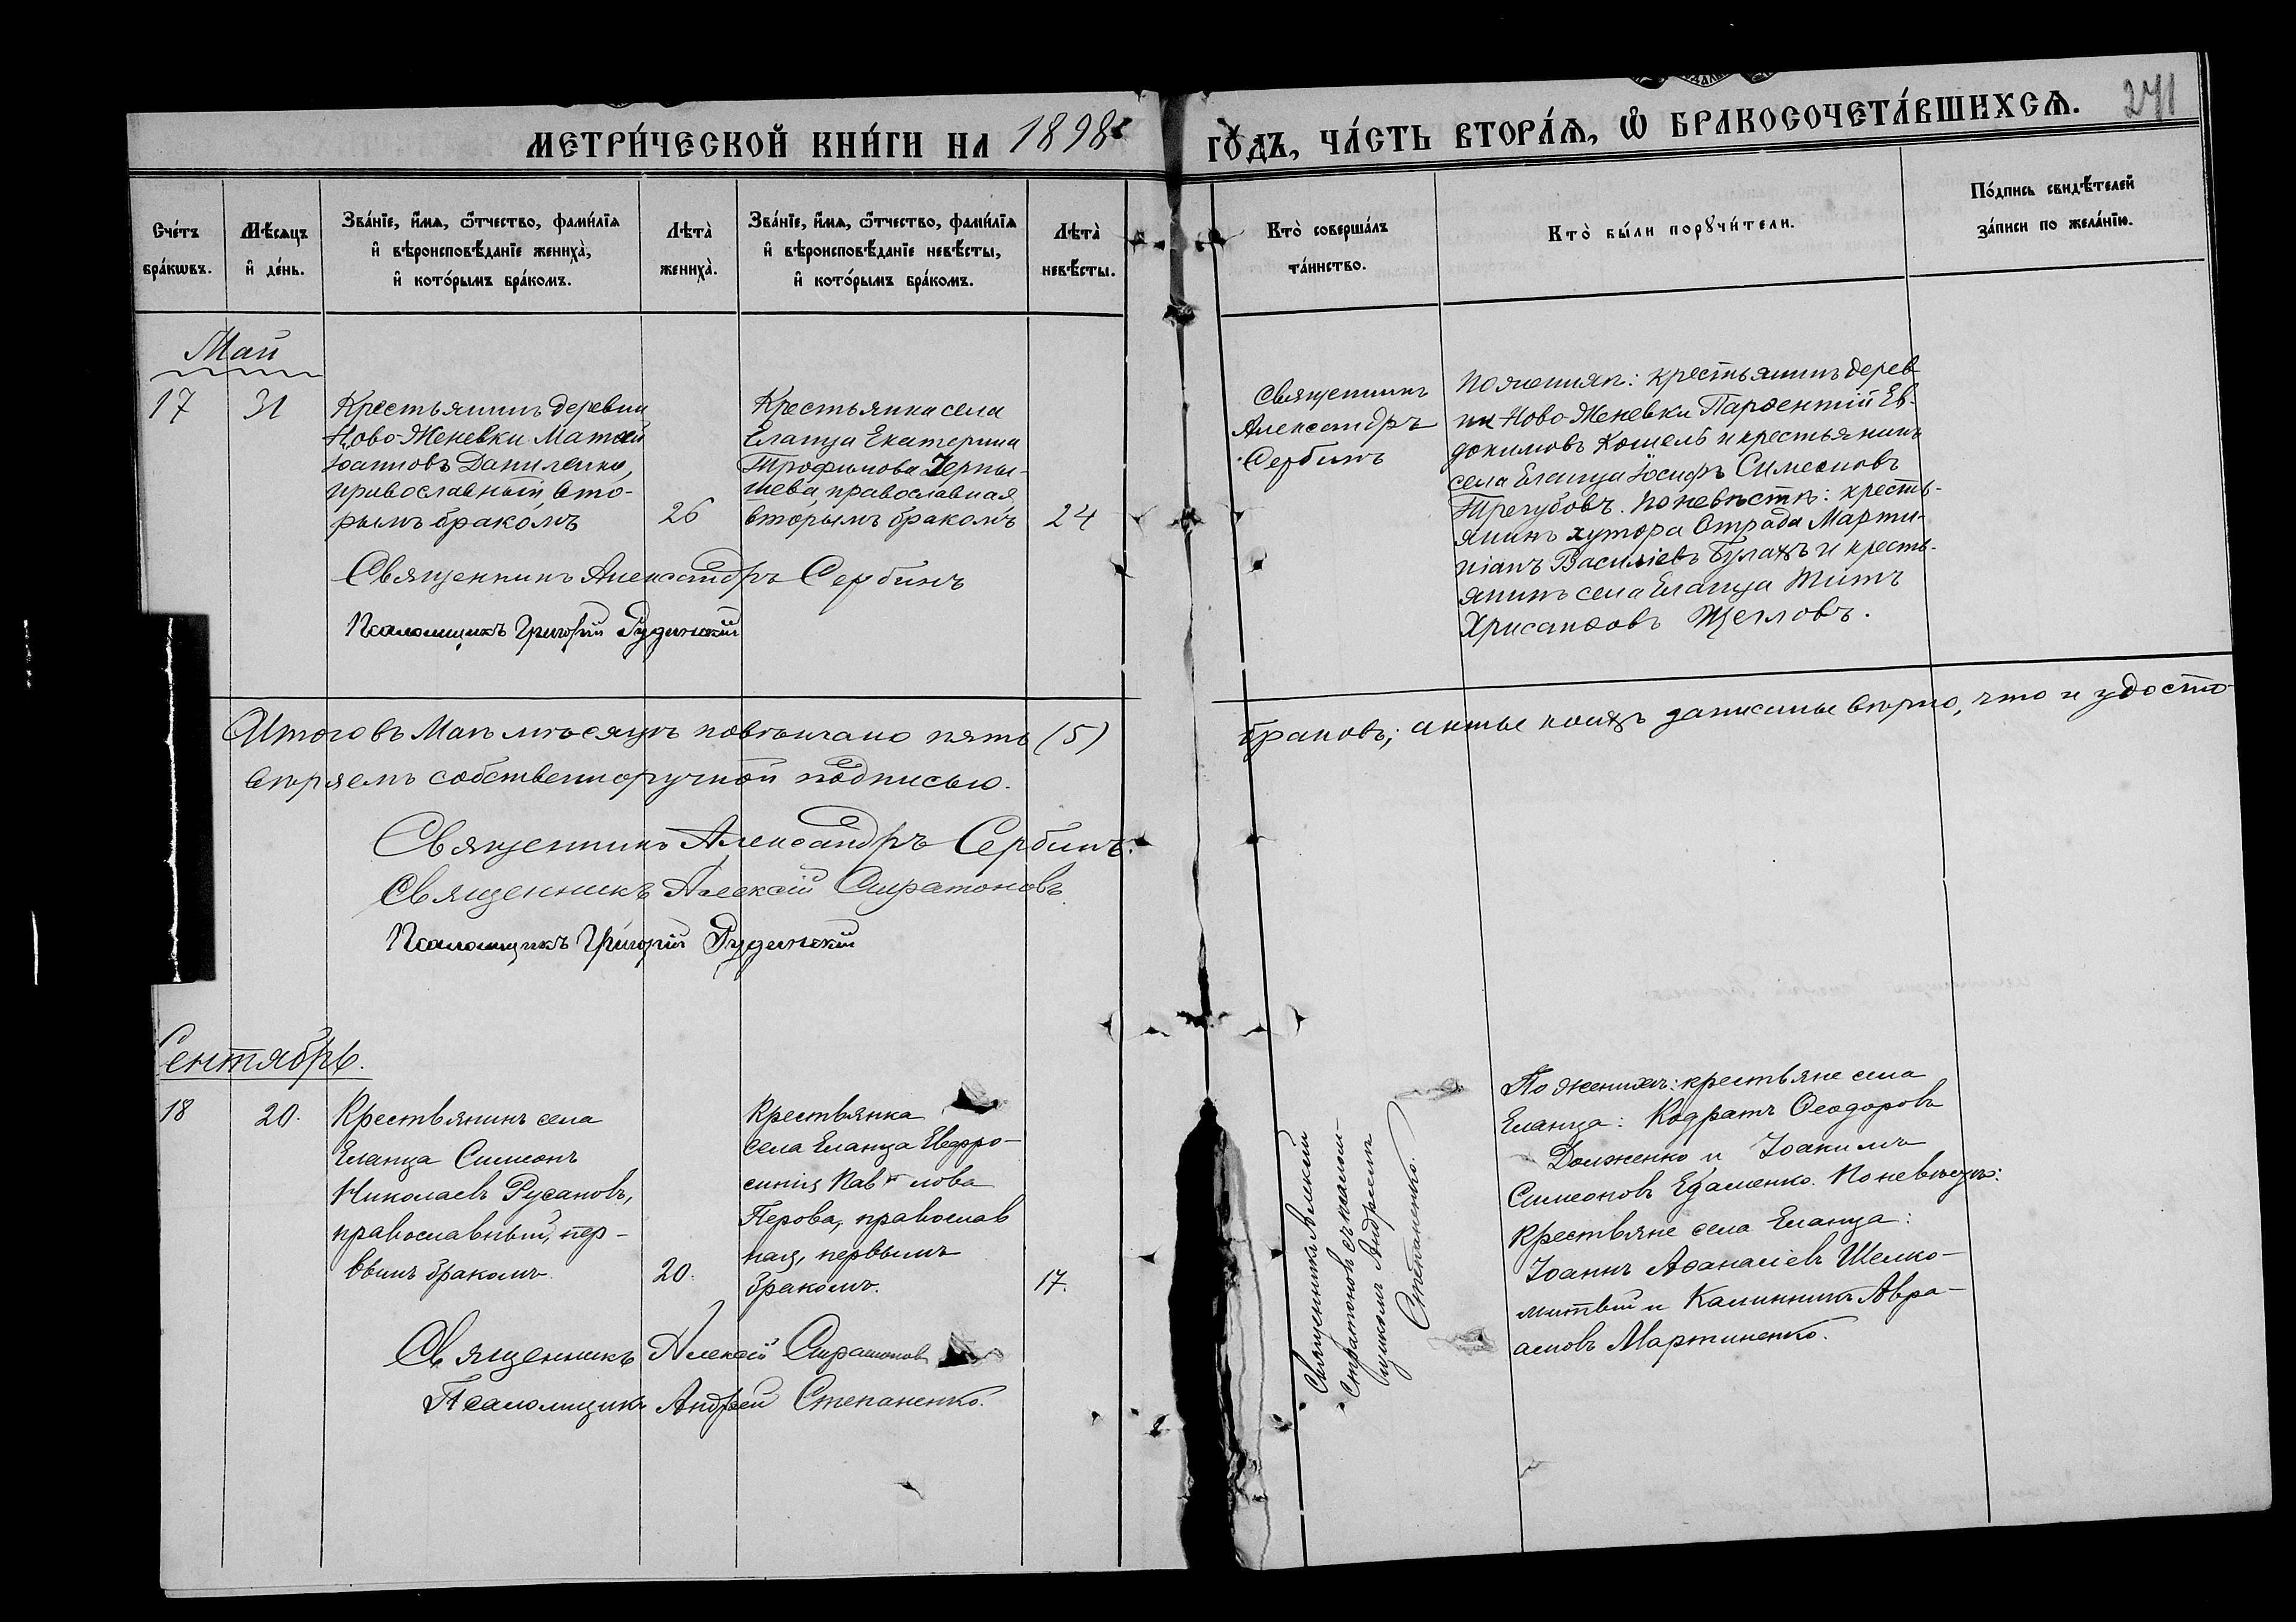 МЕТРИ́ЧЕСКОЙ КНИ́ГИ НА 1898 ГО́ДЪ, ЧА́СТЬ ВТОРА́Ѧ, Ѽ БРАКОСОЧЕТА́ВШИХСѦ. 271
Сче́тъ
бра́кѡвъ.
Мѣ́сѧцъ
и҆ де́нь.
Зва́нїе, и҆́мѧ, ѻ҆́тчество, фами́лїѧ
и҆ вѣроисповѣ́данїе жениха̀,
и҆ кото́рымъ бра́комъ.
Лѣта̀
жениха̀.
Зва́нїе, и҆́мѧ, ѻ҆́тчество, фами́лїѧ
и҆ вѣроисповѣ́данїе невѣ́сты,
и҆ кото́рымъ бра́комъ.
Лѣта̀
невѣ́сты.
Кто̀ соверша́лъ
та́инство.
Кто̀ бы́ли порꙋчи́тели.
По́дпись свидѣ́телей
за́писи по жела́нїю.
Май
17 31
Крестьянинъ деревни
Ново-Женевки Матѳій
Іоанновъ Даниленко,
православный вто-
рымъ бракомъ
26
Крестьянка села
Еланца Екатерина
Трофимова Черны-
шева, православная
вторымъ бракомъ
24
Священникъ
Александръ
Сербинъ
По женихѣ: крестьянинъ дерев
ни Ново-Женевки Парѳентій Ев-
докимовъ Кошель и крестьянинъ
села Еланца Іосифъ Симеоновъ
Трегубовъ. По невѣстѣ: кресть-
янинъ хутора Отрада Марти-
ніанъ Василіевъ Булахъ и кресть-
янинъ села Еланца Титъ
Хрисанѳовъ Щегловъ.
Священникъ Александръ Сербинъ
Псаломщикъ Григорій Рудинскій
Итого въ Маѣ мѣсяцѣ повѣнчано пять (5) браковъ; актые коихъ записаны вѣрно, что и удосто-
вѣряемъ собственноручной подписью.
Священникъ Александръ Сербинъ.
Священникъ Алексій Стратоновъ
Псаломщикъ Григорій Рудинскій
Сентябрь.
18 20.
Крестьянинъ села
Еланца Симеонъ
Николаевъ Русановъ,
православный, пер-
вымъ бракомъ
20.
Крестьянка
села Еланца Евфро-
синія Павлова
Перова, православ
ная, первымъ
бракомъ.
17.
Священникъ Алексій
Стратоновъ съ псалом-
щикомъ Андреемъ
Степаненко.
По женихѣ: крестьяне села
Еланца: Кодратъ Ѳеодоровъ
Долженко и Іоакимъ
Симеоновъ Ефаменко. По невѣстѣ:
крестьяне села Еланца:
Іоаннъ Аѳанасіевъ Шелко-
митвій и Каллиникъ Авра-
амовъ Мартиненко.
Священникъ Алексій Стратоновъ
Псаломщикъ Андрей Степаненко.